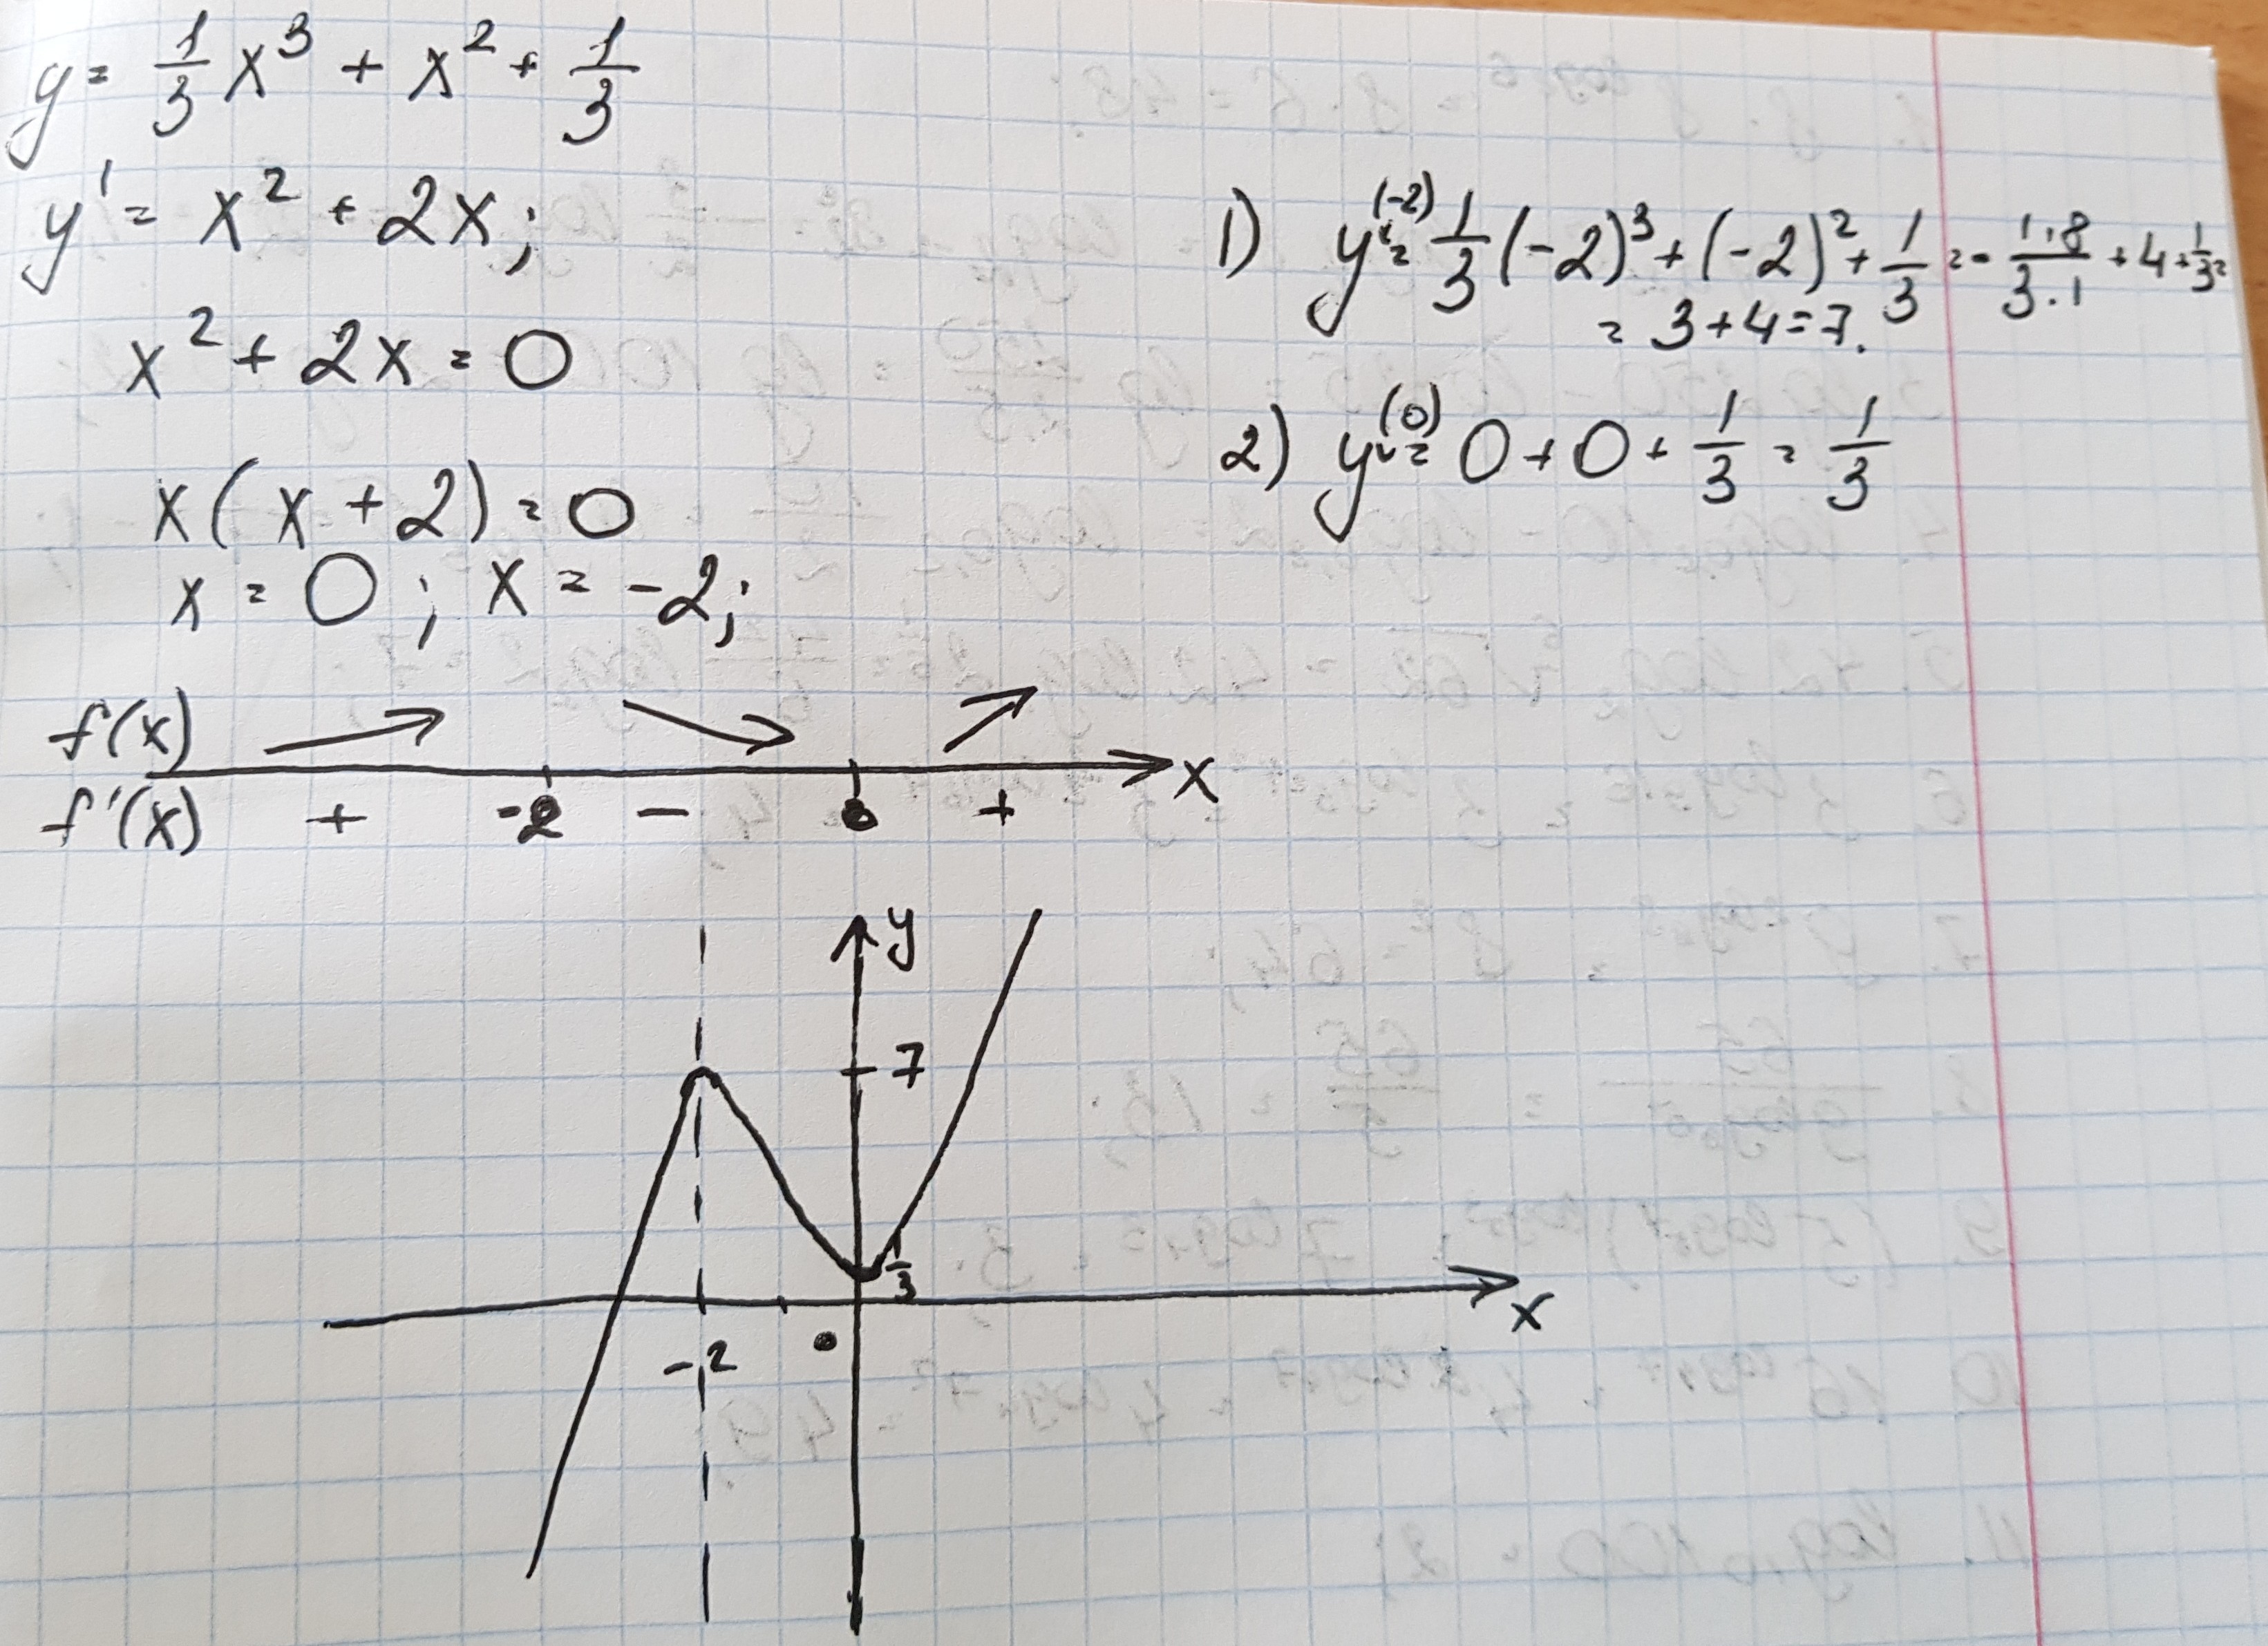 y = 1/3 x³ + x² + 1/3
y' = x² + 2x;
x² + 2x = 0
x(x + 2) = 0
x = 0; x = -2;
1) y(-2) = 1/3 (-2)³ + (-2)² + 1/3 = - 1·8/3·1 + 4 + 1/3 =
= 3 + 4 = 7.
2) y(0) = 0 + 0 + 1/3 = 1/3
f(x)
x
f'(x) + -2 - 0 +
y
7
1/3
x
-2 0